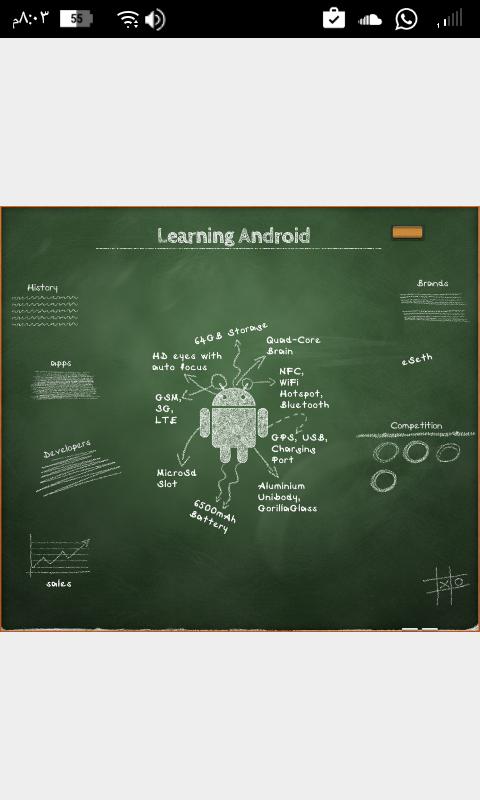 م٨:٠٣
55
Learning Android
History
Brands
64GB Storage
Quad-Core
Brain
HD eyes with
auto focus
apps
eSeth
NFC,
WiFi
Hotspot,
Bluetooth
GSM,
3G,
LTE
Competition
GPS, USB,
Charging
Port
Developers
MicroSd
Slot
Aluminium
Unibody,
GorillaGlass
6500mAh
Battery
sales
X O